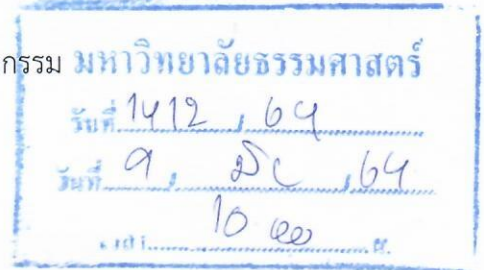 กรรม มหาวิทยาลัยธรรมศาสตร์
รับที่ 1412 / 64
วันที่ 9 / มิย / 64
เวลา 10 น.